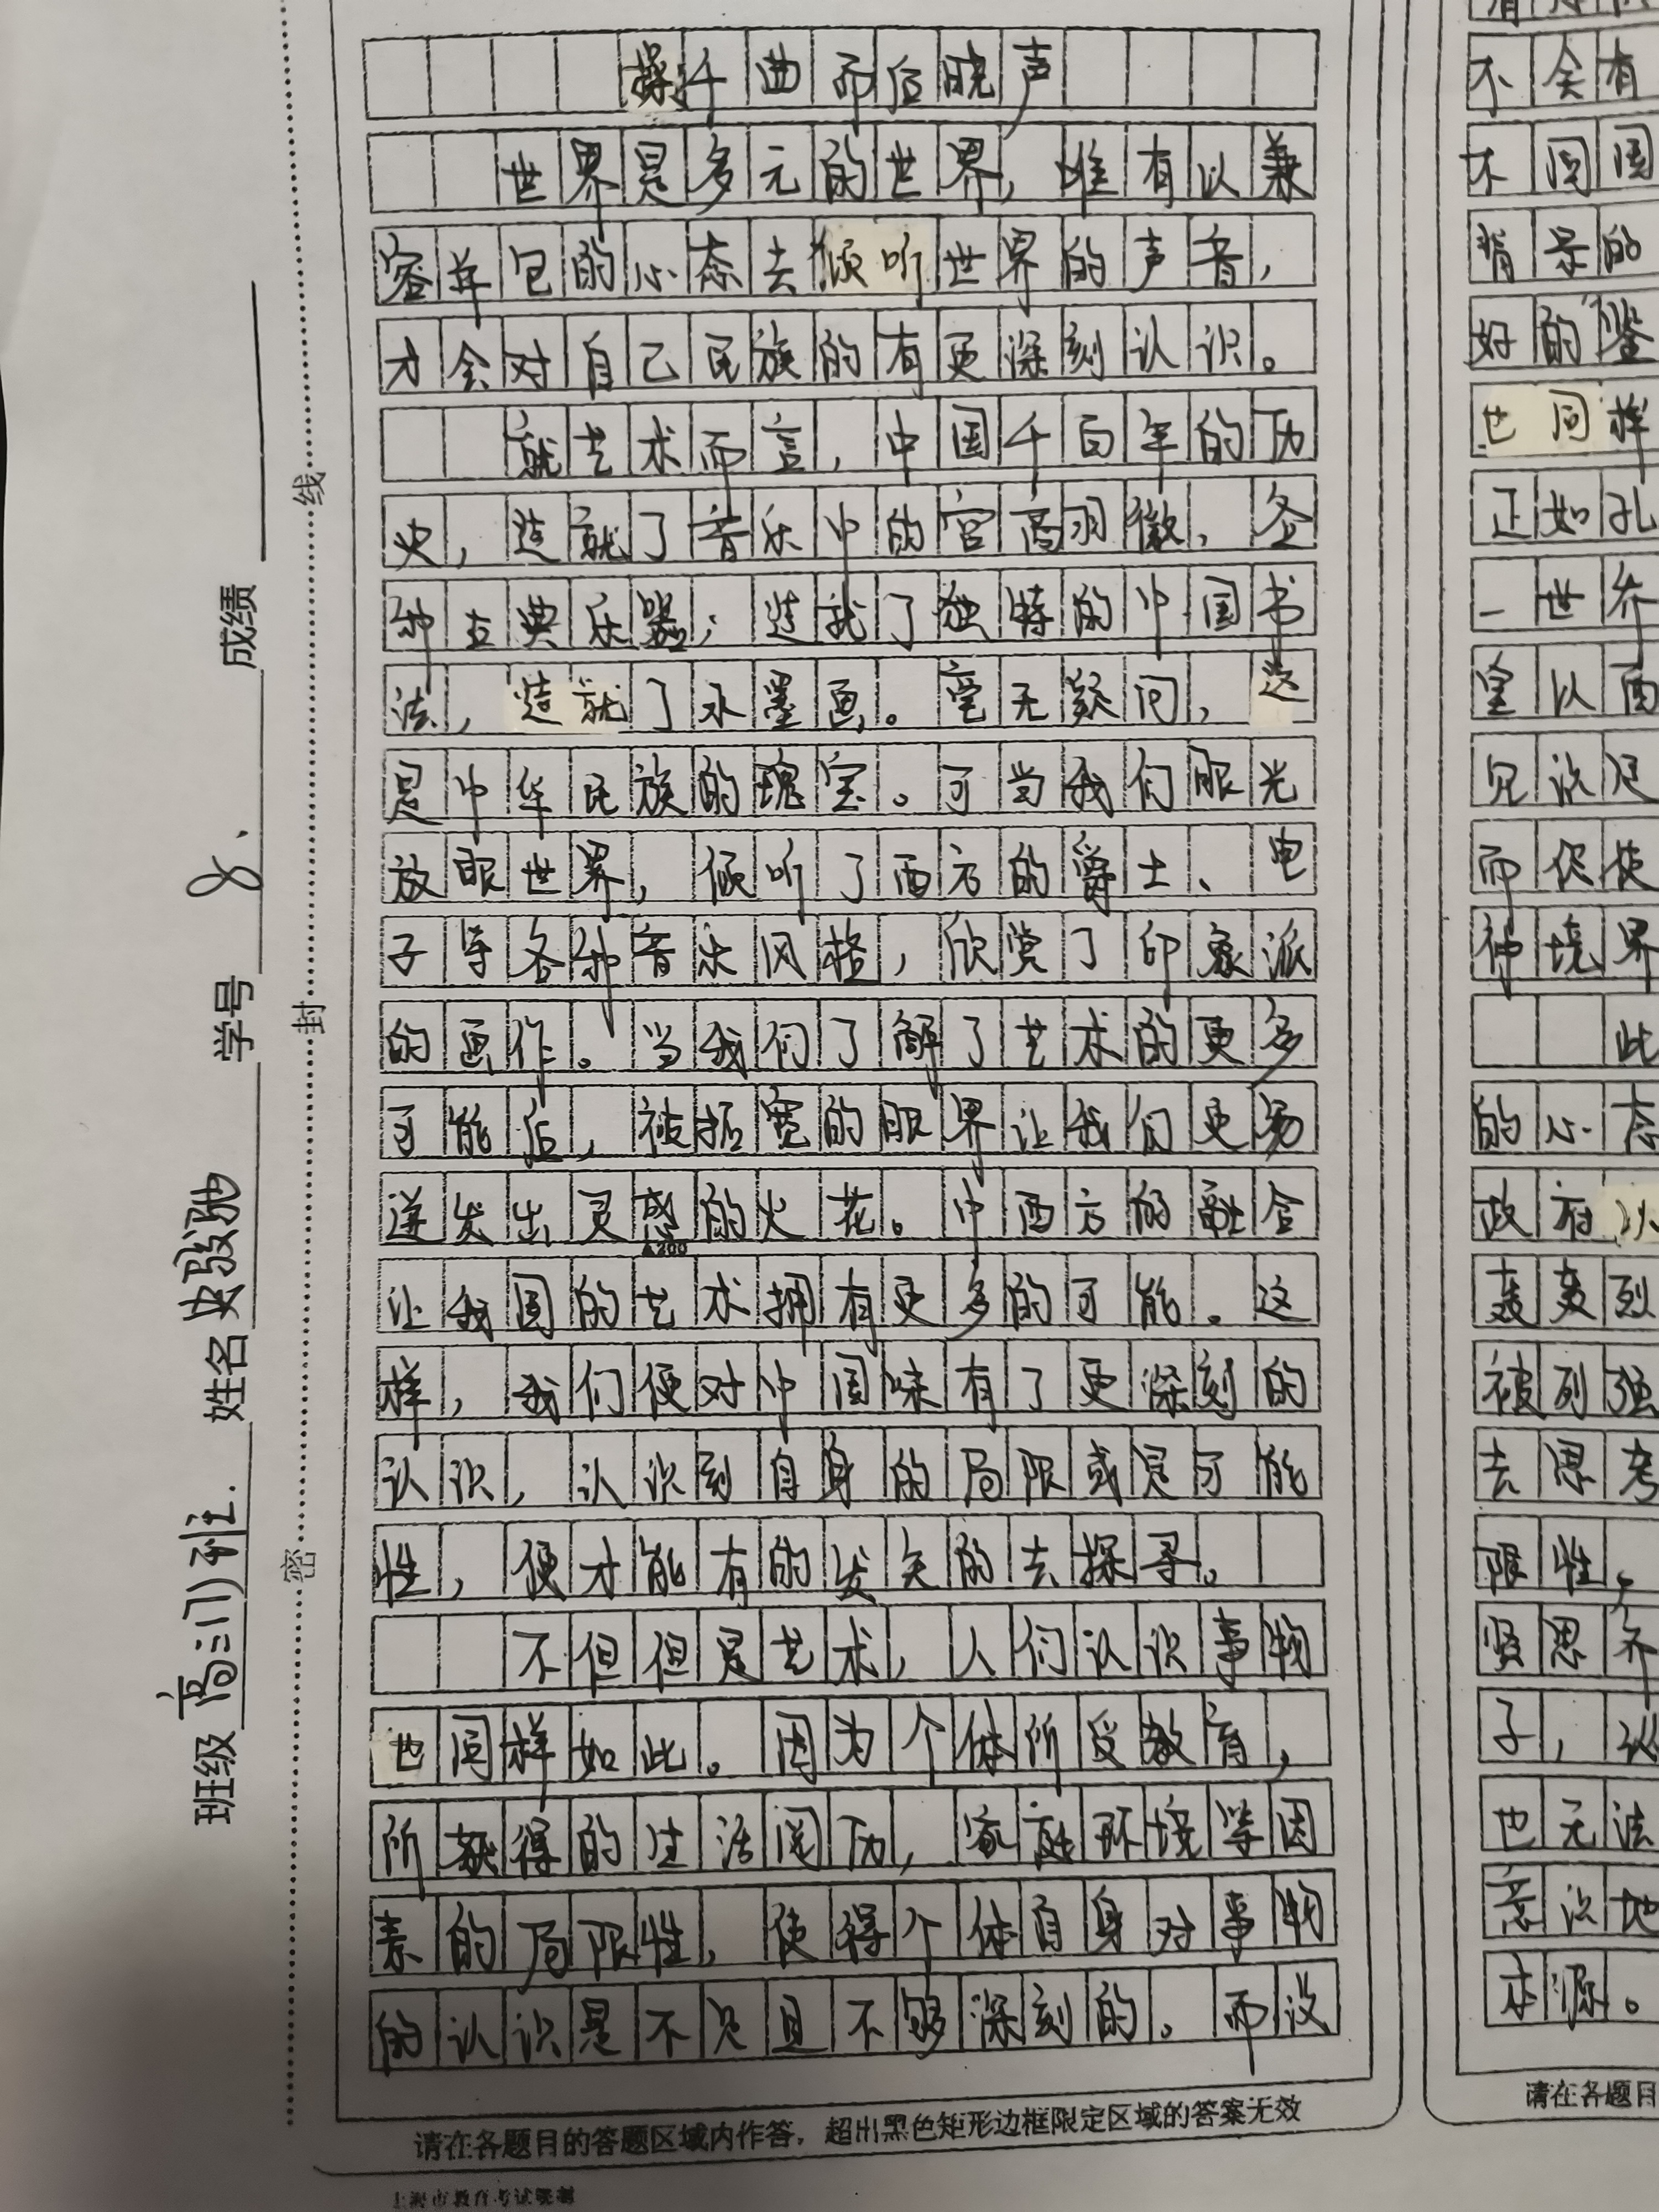 操千曲而后晓声
世界是多元的世界，唯有以兼
容并包的心态去倾听世界的声音，
才会对自己民族的有更深刻认识。
就艺术而言，中国千百年的历
史，造就了音乐中的宫商羽徵，各
种古典乐器；造就了独特的中国书
法，造就了水墨画。毫无疑问，这
是中华民族的瑰宝。可当我们眼光
放眼世界，倾听了西方的爵士、电
子等各种音乐风格，欣赏了印象派
的画作。当我们了解了艺术的更多
可能后，被拓宽的眼界让我们更易
迸发出灵感的火花。中西方的融合
▲200
让我国的艺术拥有更多的可能。这
样，我们便对中国味有了更深刻的
认识，认识到自身的局限或是可能
性，便才能有的发矢的去探寻。
不但但是艺术，人们认识事物
也同样如此。因为个体所受教育，
所获得的生活阅历，家庭环境等因
素的局限性，使得个体自身对事物
的认识是不足且不够深刻的。而设
请在各题目的答题区域内作答，超出黑色矩形边框限定区域的答案无效
上海市教育考试院制
班级 高三(1)班. 姓名 学号 8、 成绩
密 封 线
不会有
不同国
背景的
好的鉴
也同样
正如孔
一世界
望以西
见识足
而促使
神境界
此
的心态
政府以
轰轰烈
被列强
去思考
限性，
贤思齐
子，认
也无法
意识地
本源。
请在各题目